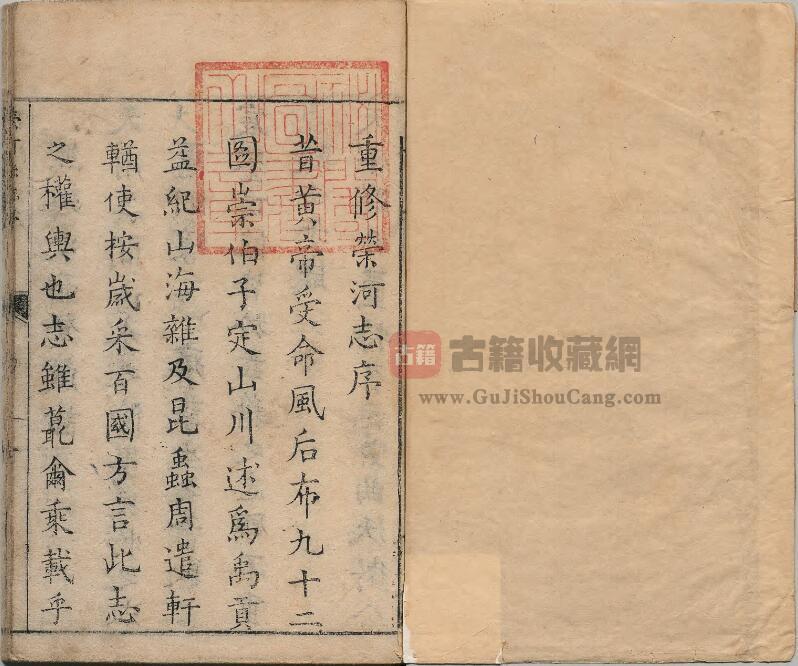 重修榮河志序
昔黃帝受命風后布九十二
圖崇伯子定山川述爲禹貢
益紀山海雜及昆蟲周遣軒
輶使按歲采百國方言此志
之權輿也志雖蕞爾乘載乎
古籍 古籍收藏網
www.GuJiShouCang.com